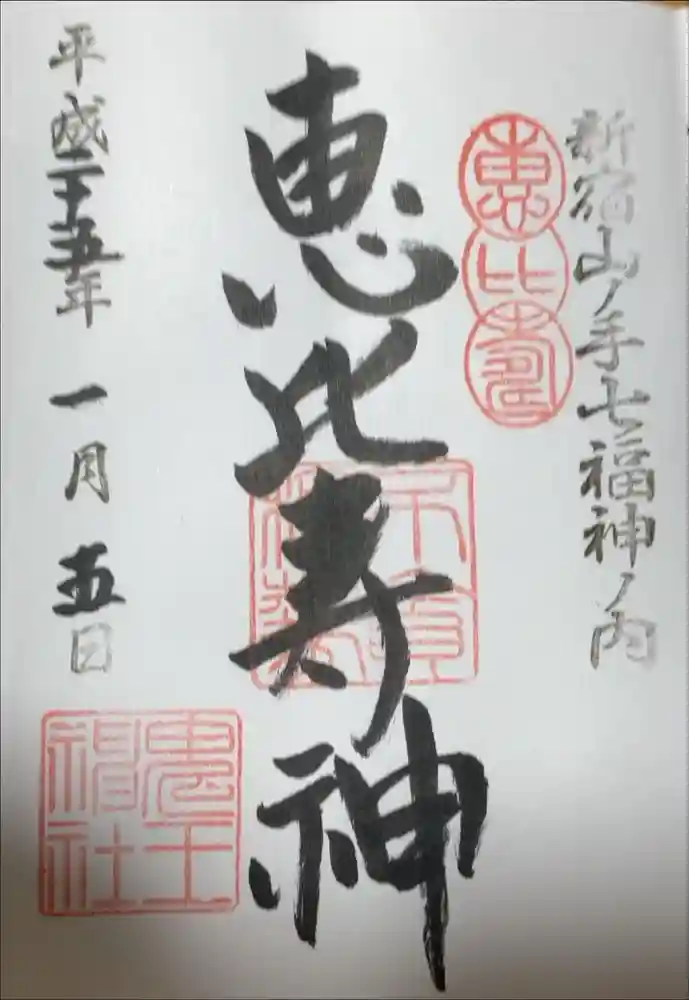 新宿山ノ手七福神ノ内
恵比寿
恵比寿神
平成二十五年 一月 五日
鬼王神社